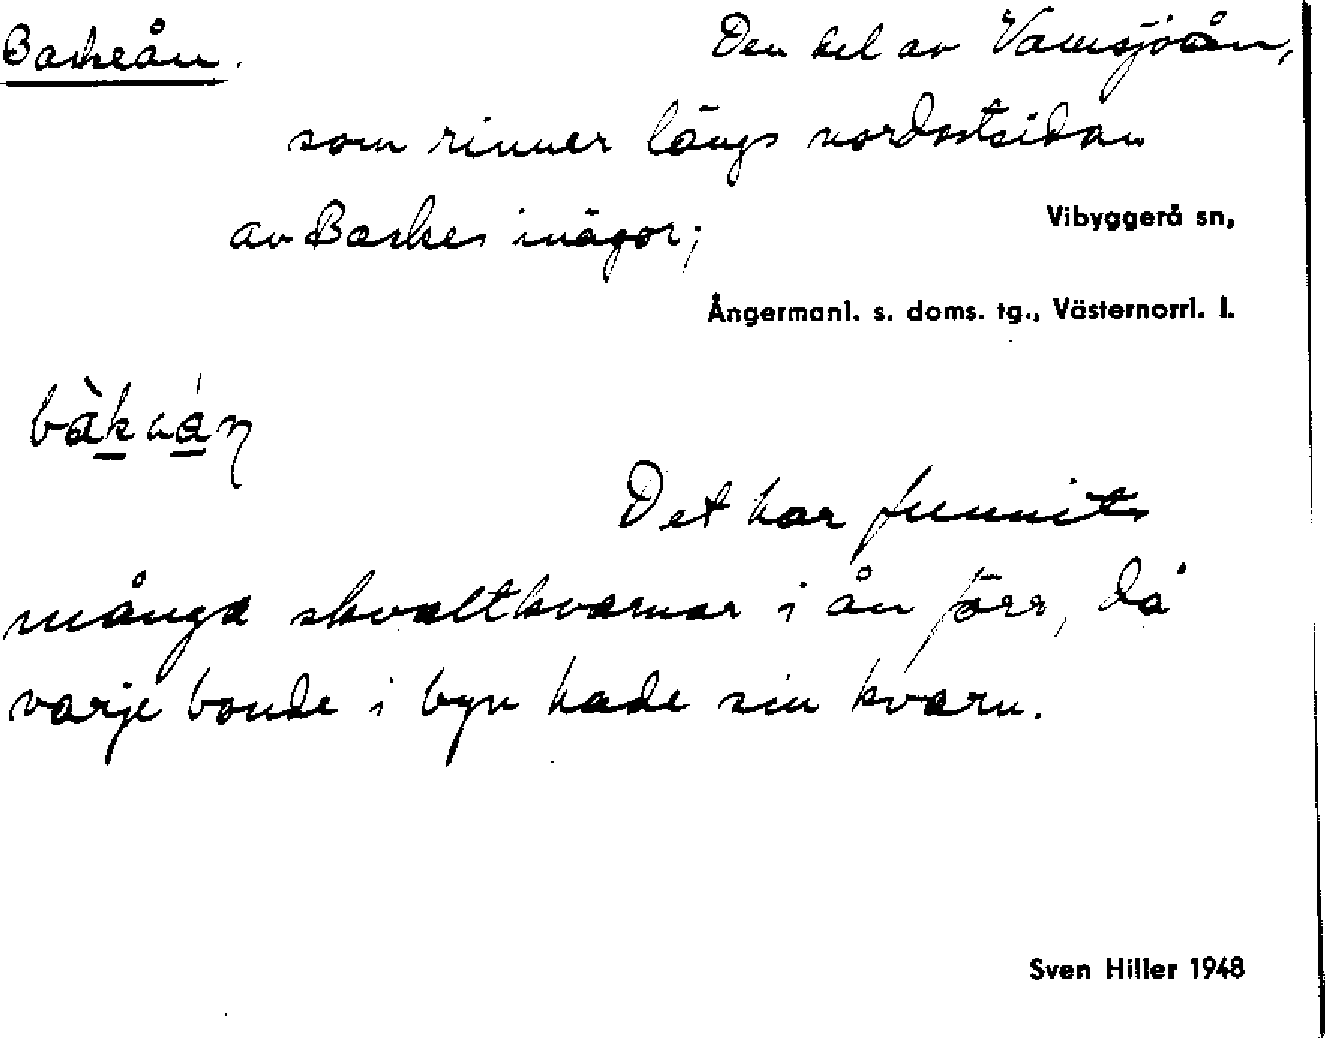 Baskeån.
Den del av Vamsjöån,
som rinner längs nordostsidan
av Baskes inägor;
Vibyggerå sn,
Ångermanl. s. doms. tg., Västernorrl. l.
Det har funnits
många skvaltkvarnar i ån förr, då
varje bonde i byn hade sin kvarn.
Sven Hiller 1948